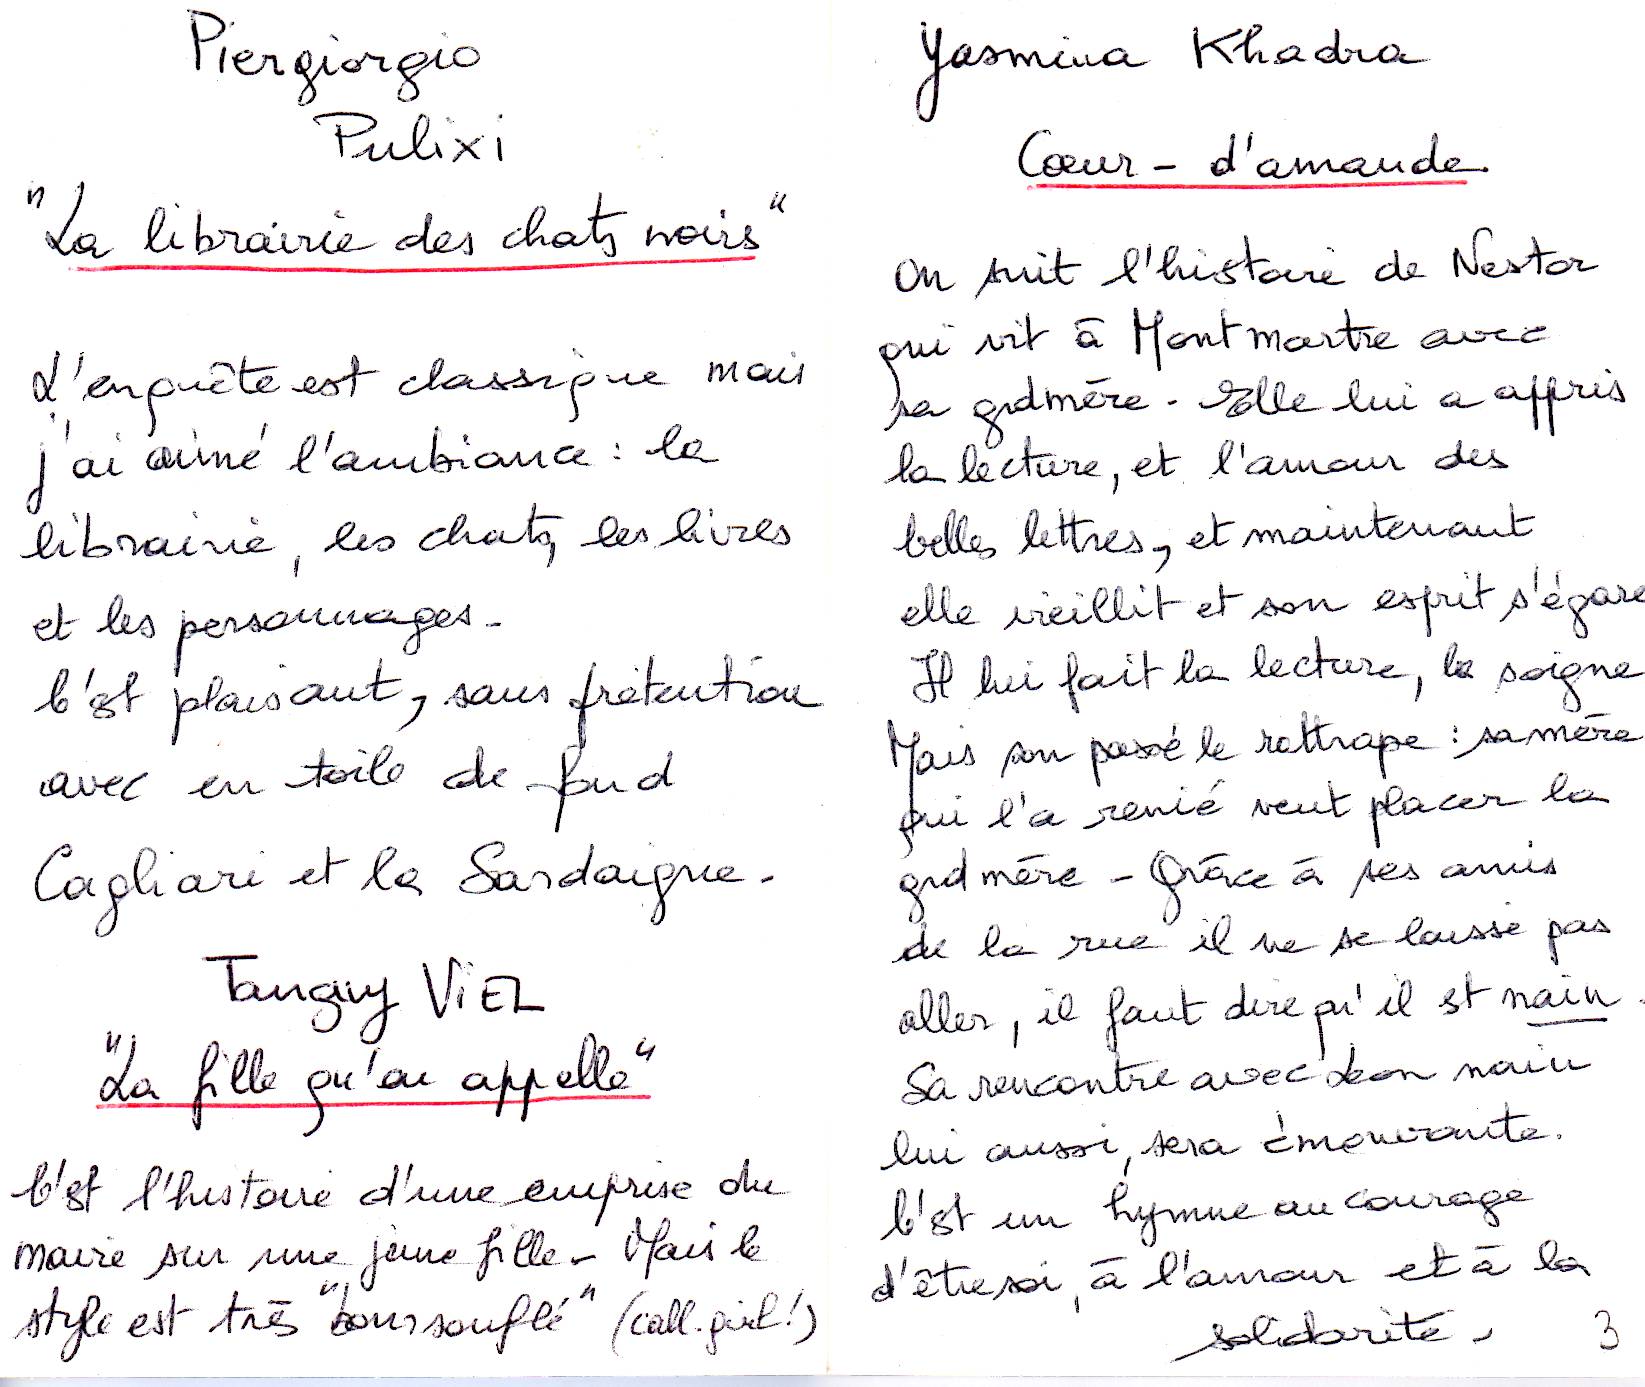 Piergiorgio
Pulixi
"La librairie des chats noirs"
L'enquête est classique mais
j'ai aimé l'ambiance : la
librairie, les chats, les livres
et les personnages -
C'est plaisant, sans prétention
avec en toile de fond
Cagliari et la Sardaigne.
Tanguy VIEL
"La fille qu'on appelle"
C'est l'histoire d'une emprise du
maire sur une jeune fille - Mais le
style est très "boursouflé" (call-girl !)
Yasmina Khadra
Cœur - d'amande
On suit l'histoire de Nestor
qui vit à Montmartre avec
sa grdmère. Elle lui a appris
la lecture, et l'amour des
belles lettres, et maintenant
elle vieillit et son esprit s'égare
Il lui fait la lecture, la soigne
Mais son passé le rattrape : sa mère
qui l'a renié veut placer la
grdmère - Grâce à ses amis
de la rue il ne se laisse pas
aller, il faut dire qu'il est nain.
Sa rencontre avec Léon nain
lui aussi, sera émouvante.
C'est un hymne au courage
d'être soi, à l'amour et à la
solidarité -
3